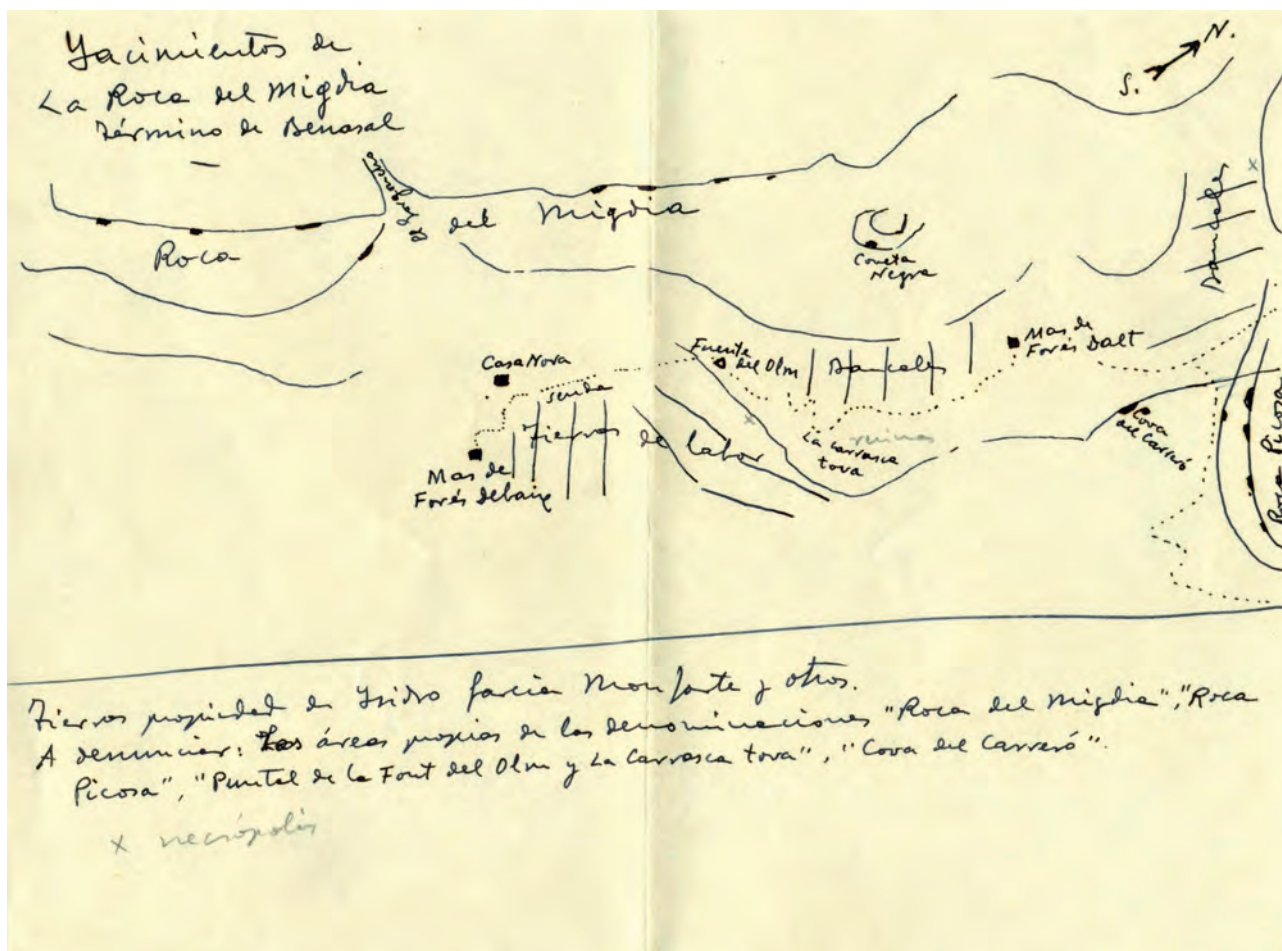 Yacimientos de
La Roca del Migdia
Término de Benasal
N.
S.
x
Bancales
El Fargancho
Roca
del Migdia
Coveta
Negra
Mas de
Forés Dalt
Fuente
del Olm
Bancales
Casa Nova
senda
Tierras de labor
x
ruinas
La Carrasca
tova
Cova
del Carreró
Roca Picosa
Mas de
Forés debaix
Tierras propiedad de Ysidro García Monforte y otros.
A denunciar: Las áreas propias de las denominaciones "Roca del Migdia", "Roca
Picosa", "Puntal de la Font del Olm y La Carrasca tova", "Cova del Carreró".
x necrópolis